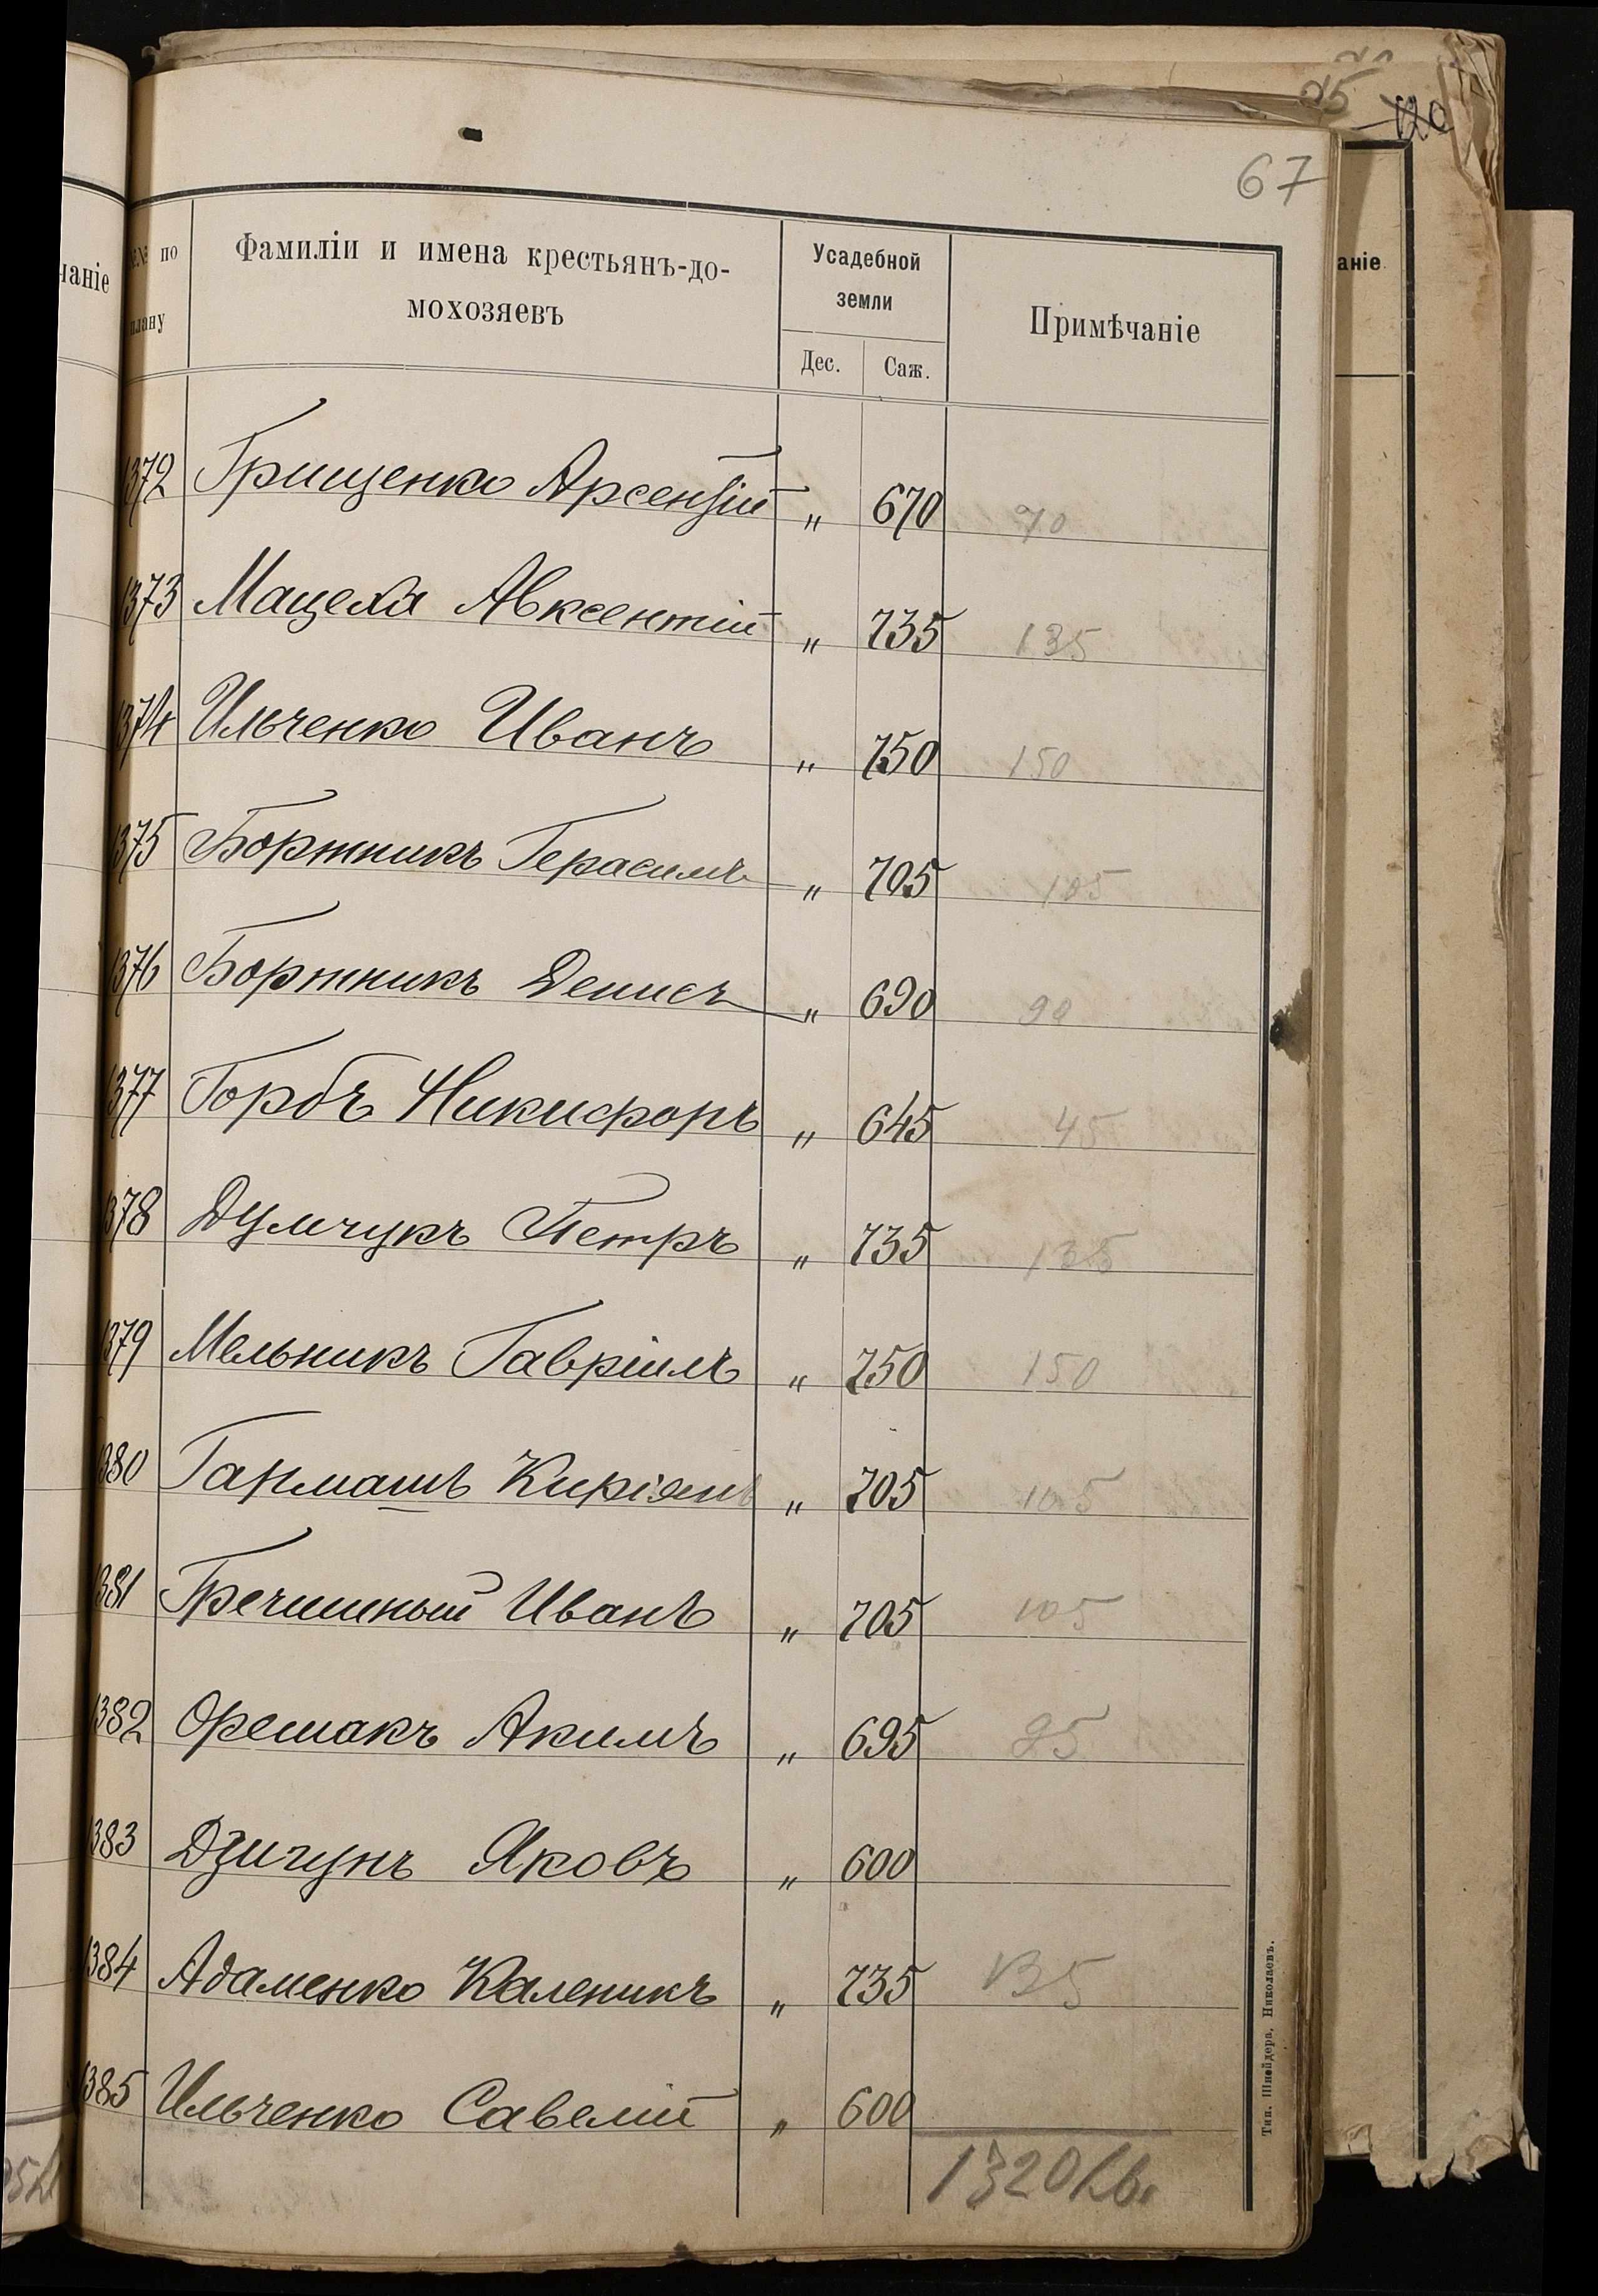 67
№№ по плану
Фамиліи и имена крестьянъ-до-
мохозяевъ
Усадебной
земли
Дес. Саж.
Примѣчаніе
чаніе
аніе
1372 Грищенко Арсентій „ 670 70
1373 Мацеха Авксентій „ 735 135
1374 Ильченко Иванъ „ 750 150
1375 Бортникъ Герасимъ „ 705 105
1376 Бортникъ Денисъ „ 690 90
1377 Горбъ Никифоръ „ 645 45
1378 Думчукъ Петръ „ 735 135
1379 Мельникъ Гавріилъ „ 750 150
1380 Гармашъ Киріянъ „ 705 105
1381 Гречишный Иванъ „ 705 105
1382 Орешакъ Акимъ „ 695 95
1383 Дзигунъ Яковъ „ 600
1384 Адаменко Каленикъ „ 735 135
1385 Ильченко Савелій „ 600
1320 кв.
Тип. Шнейдера, Николаевъ.